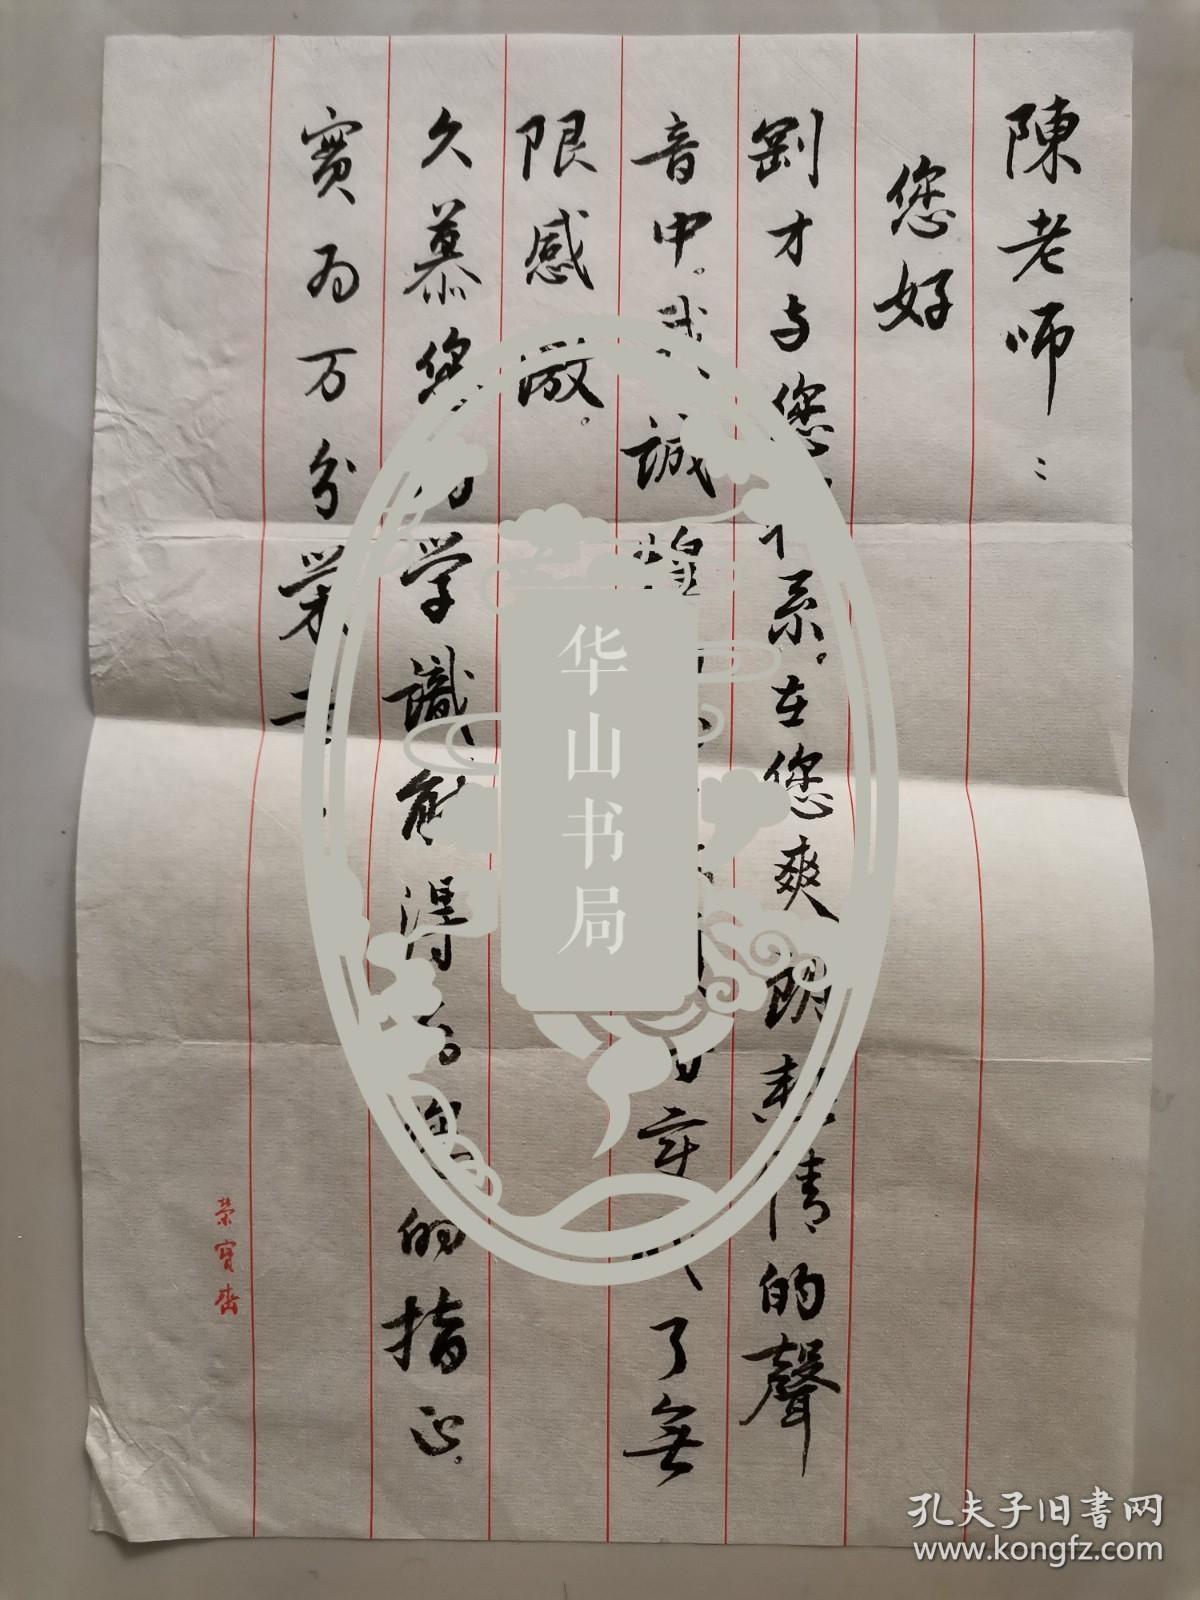 陳老师：
您好
刚才与您系。在您爽朗热情的聲
音中。我誠了無
限感激。
久慕您的学識，能得到您的指正。
實为万分荣
榮寶齋
华山书局
孔夫子旧书网
www.kongfz.com